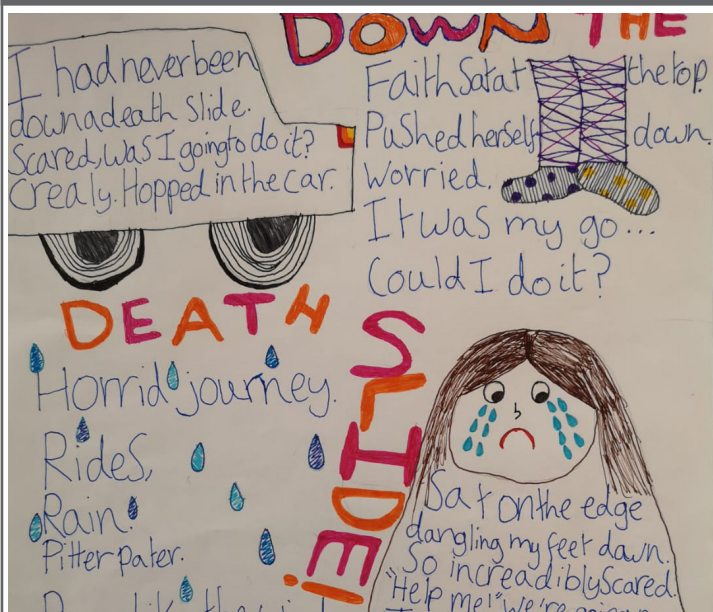 DOWN THE
I had never been
down a death slide.
Scared, was I going to do it?
Crealy. Hopped in the car.
Faith Sat at the top.
Pushed herself down.
Worried.
It was my go...
Could I do it?
DEATH
SLIDE!
Horrid journey.
Rides,
Rain.
Pitter pater.
Sat on the edge
dangling my feet down.
So increadibly Scared.
"Help me!" we're